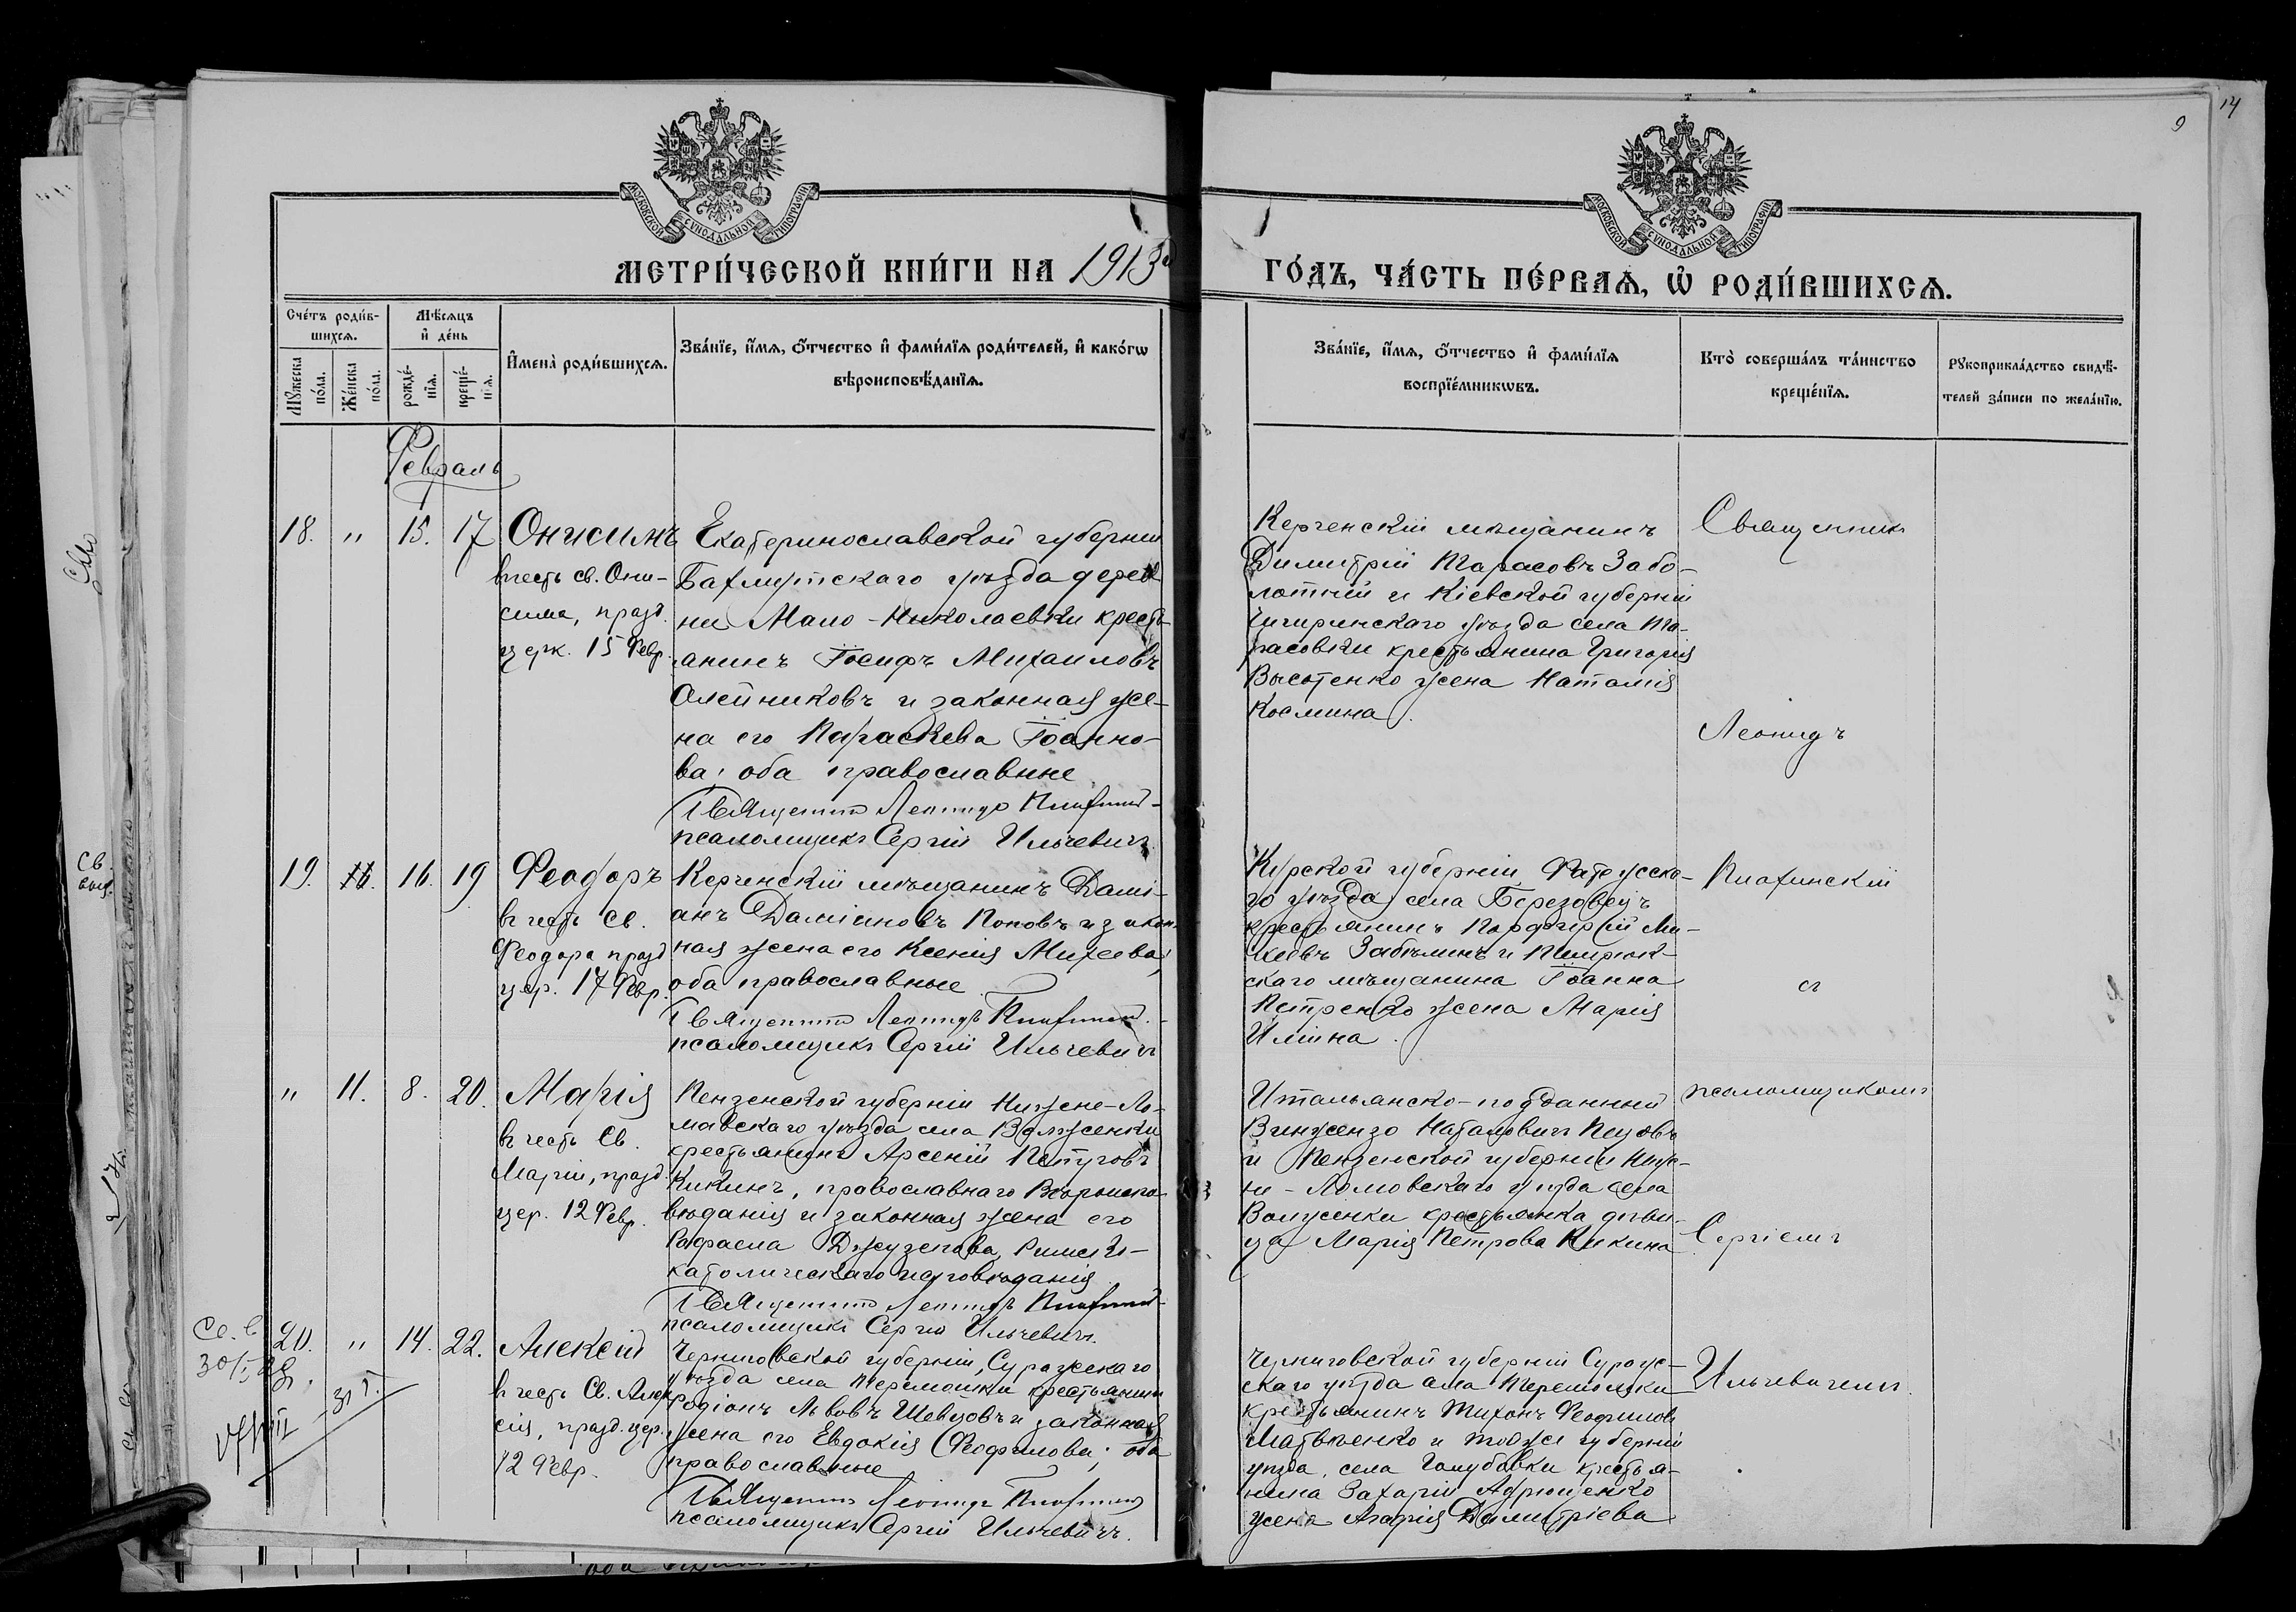 14
9
МОСКОВСКОЙ СѴНОДАЛЬНОЙ ТИПОГРАФІИ
МОСКОВСКОЙ СѴНОДАЛЬНОЙ ТИПОГРАФІИ
МЕТРИ́ЧЕСКОЙ КНИ́ГИ НА 1913й
ГО́ДЪ, ЧА́СТЬ ПЕ́РВАѦ, Ѡ҆ РОДИ́ВШИХСѦ.
Сче́тъ роди́в-
шихсѧ.
Мꙋжеска по́ла.
Же́нска по́ла.
Мѣ́сѧцъ
и҆ де́нь
рожде́-
нїѧ.
креще́-
нїѧ.
И҆мена̀ роди́вшихсѧ.
Зва́нїе, и҆́мѧ, ѻ҆́тчество и҆ фами́лїѧ роди́телей, и҆ како́гѡ
вѣроисповѣ́данїѧ.
Зва́нїе, и҆́мѧ, ѻ҆́тчество и҆ фами́лїѧ
воспрїе́мникѡвъ.
Кто̀ соверша́лъ та́инство
креще́нїѧ.
Рꙋкоприкла́дство свидѣ́-
телей за́писи по жела́нїю.
Февраль
18. " 15. 17 Онисимъ
въ честь св. Они-
сима, празд.
церк. 15 Февр.
Екатеринославской губерніи
Бахмутскаго уѣзда дерев
ни Мало-Николаевки кресть
янинъ Іосифъ Михаиловъ
Олейниковъ и законная же-
на его Параскева Іоанно-
ва; оба православные
Священникъ Леонидъ
псаломщикъ Сергій Ильчевичъ
Керченскій мѣщанинъ
Димитрій Тарасовъ Забо-
лотній и Кіевской губерніи
Чигиринскаго уѣзда села Та-
расовки крестьянина Григорія
Высотенко жена Наталія
Космина.
Священникъ
Леонидъ
19. 16. 19 Феодоръ
въ честь св.
Феодора празд
цер. 17 Февр.
Керченскій мѣщанинъ Дамі-
анъ Даміановъ Поповъ и закон-
ная жена его Ксенія Михеева;
оба православные
Священникъ Леонидъ
псаломщикъ Сергій Ильчевичъ
Курской губерніи, Фатежска-
го уѣзда, села Березовецъ
крестьянинъ Ми-
хеевъ и Темрюк-
скаго мѣщанина Іоанна
Петренко жена Марія
Иліина.
съ
" 11. 8. 20. Марія
въ честь Св.
Маріи, празд.
цер. 12 Февр.
Пензенской губерніи Нижне-Ло-
мовскаго уѣзда села Волженки
крестьянинъ Арсеній Петровъ
Кикинъ, православнаго Вѣроиспо-
вѣданія и законная жена его
Рафаела Джузепова, Римско-
католическаго исповѣданія
Священникъ Леонидъ
псаломщикъ Сергій Ильчевичъ.
Итальянско-подданный
Винжензо Наталовичъ
и Пензенской губерніи Ниж-
не-Ломовскаго уѣзда села
Волженки крестьянка дѣви-
ца Марія Петрова Кикина
псаломщикомъ
Сергіемъ
20. " 14. 22. Алексій
въ честь Св. Алек
сія, празд. цер.
12 Февр.
Черниговской губерніи, Суражскаго
уѣзда села Теремошки крестьянинъ
Родіонъ Львовъ Шевцовъ и законная
жена его Евдокія Феофилова; оба
православные
Священникъ Леонидъ
псаломщикъ Сергій Ильчевичъ.
Черниговской губерніи Сураж-
скаго уѣзда села Теремошки
крестьянинъ Тихонъ Феофиловъ
Матвѣенко и той же губерніи
уѣзда, села Голубовки крестья-
нина Захарія
жена Марія Димитріева
Ильчевичемъ.